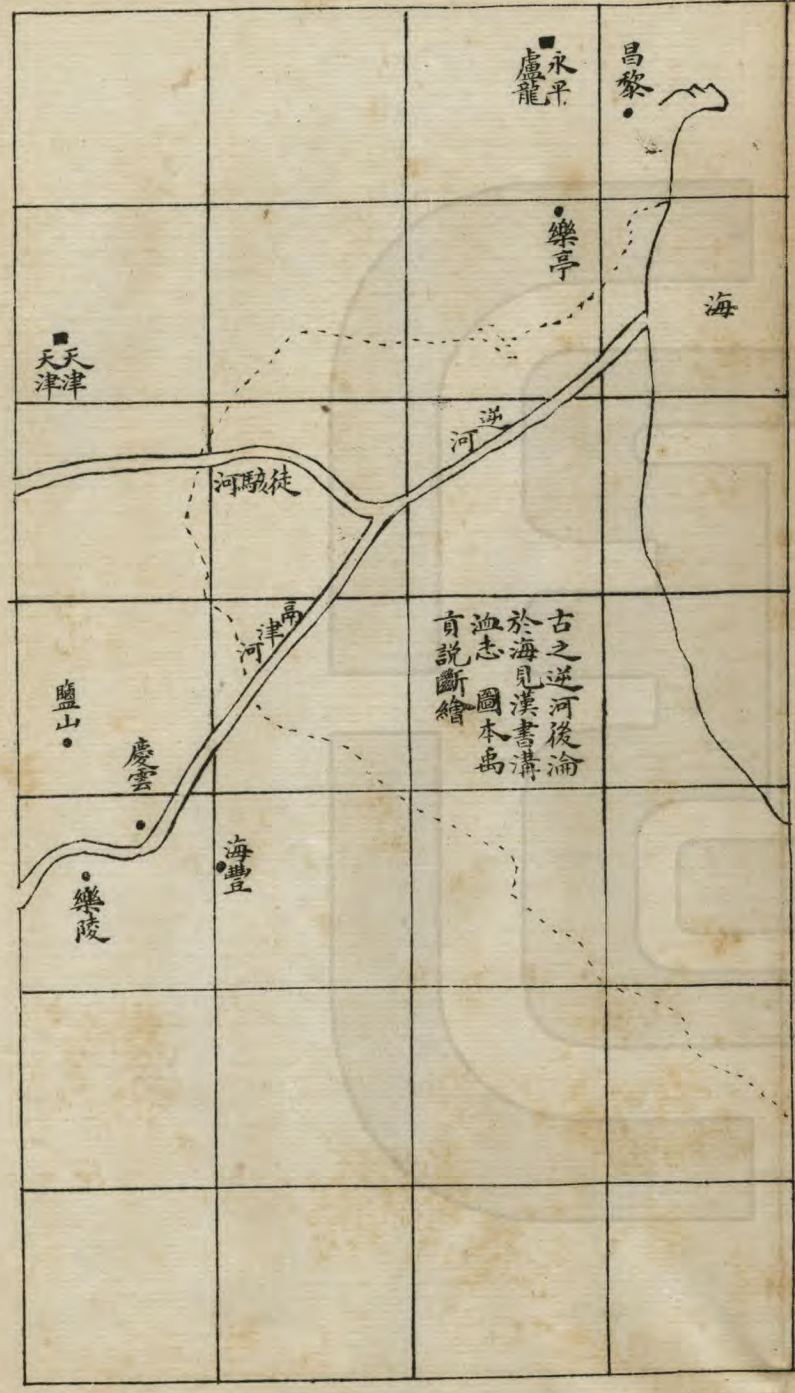 昌黎
永平
盧龍
樂亭
海
天津
天津
逆河
徒駭河
鬲津河
古之逆河後淪
於海見漢書溝
洫志 圖本禹
貢説斷繪
鹽山
慶雲
海豐
樂陵